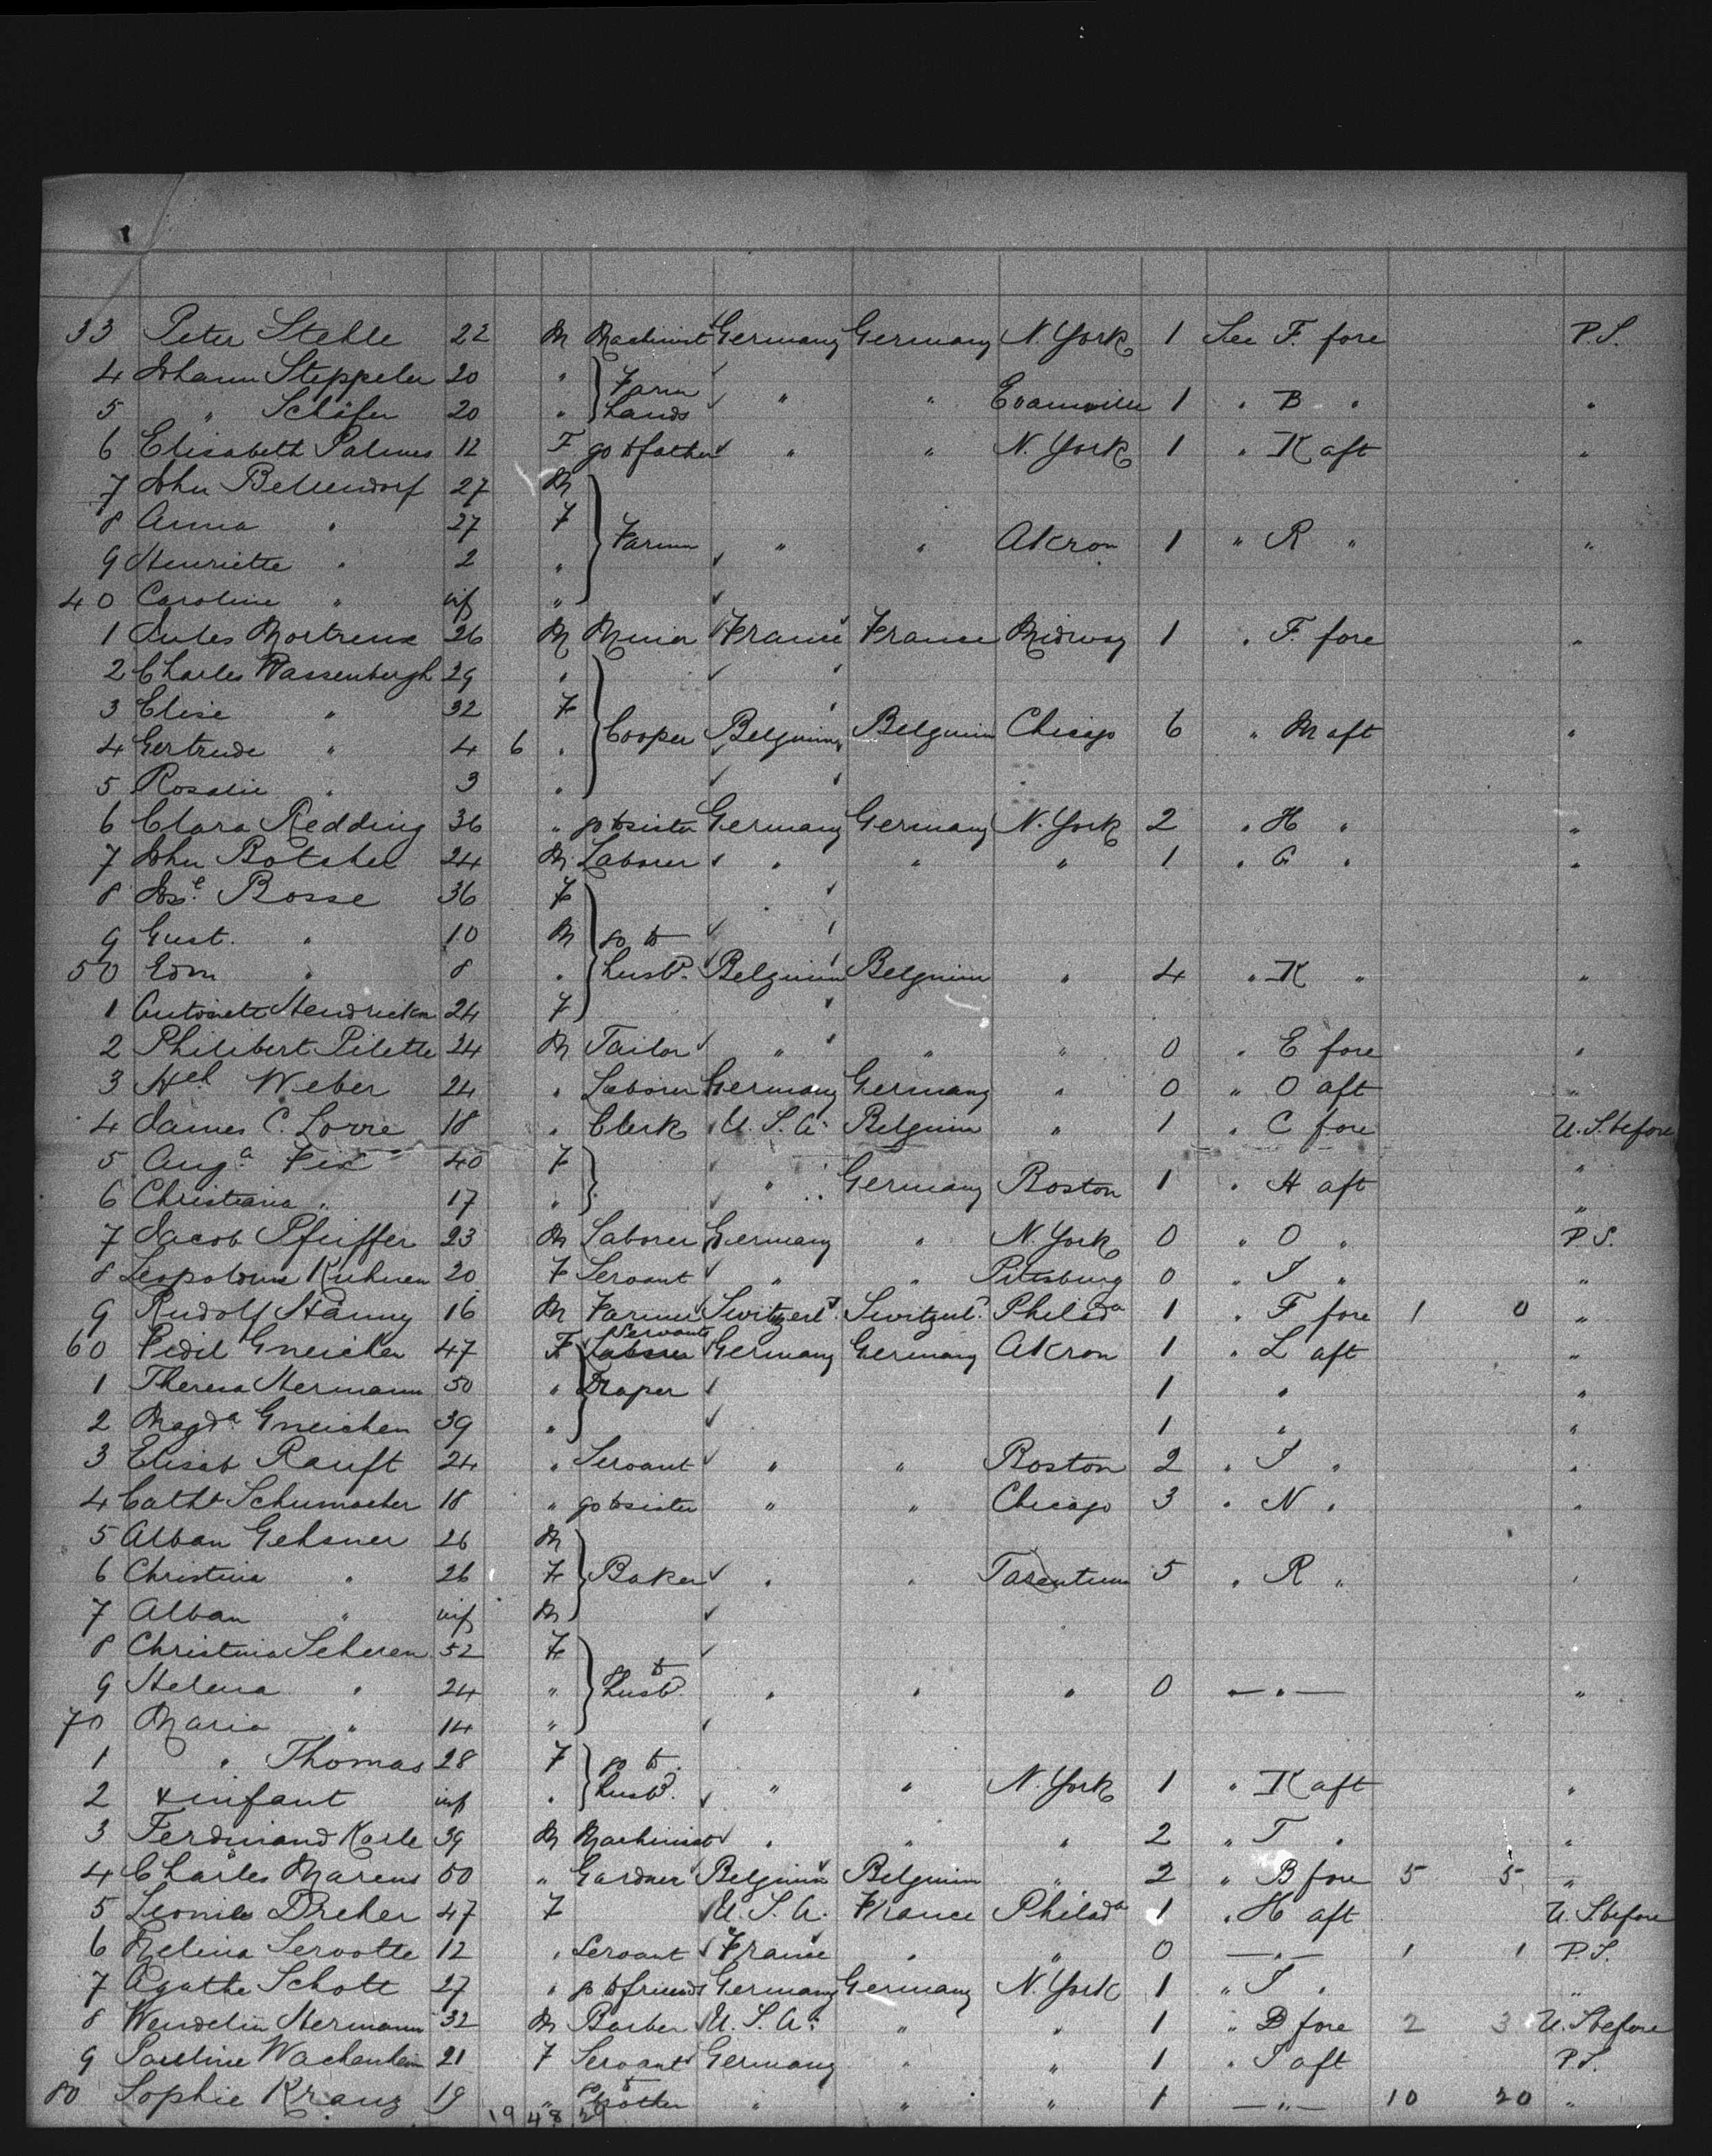 33 Peter Stehle 22 M Machinist Germany Germany N. York 1 See F. fore P.S.
4 Johann Steppeler 20 "
Farm
5 " Schäfer 20 " hands " " Evansville 1 " B " "
6 Elisabeth Palmes 12 F go to father " " N. York 1 " K aft "
7 John Bellendorf 27 M
8 Anna " 27 F
Farmer " " Akron 1 " R " "
9 Henriette " 2 "
40 Caroline " inf "
1 Jules Mortreux 26 M Miner France France Midway 1 " F. fore "
2 Charles Wassenbergh 29 "
3 Elise " 32 F
4 Gertrude " 4 6 " Cooper Belgium Belgium Chicago 6 " M aft "
5 Rosalie " 3 "
6 Clara Redding 36 " go to sister Germany Germany N. York 2 " H " "
7 John Botsher 24 M Laborer " " " 1 " G " "
8 Jose. Bosse 36 F
9 Gust. " 10 M go to
50 Edm " 8 " husbd. Belgium Belgium " 4 " K " "
1 Antoinette Hendrickn 24 F
2 Philibert Pilette 24 M Tailor " " " 0 " E fore "
3 Hch Weber 24 " Laborer Germany Germany " 0 " O aft "
4 James C. Lovre 18 " Clerk U.S.A. Belgium " 1 " C fore U.S. before
5 Auga. Fix 40 F "
" Germany Boston 1 " H aft
6 Christiana " 17 " "
7 Jacob Pfeiffer 23 M Laborer Germany " N. York 0 " O " P.S.
8 Leopoldine Kuhnen 20 F Servant " " Pittsburg 0 " S " "
9 Rudolf Hänny 16 M Farmer Switzerld. Switzerld. Philada 1 " F fore 1 0 "
Servants
60 Fidel Gneichen 47 F Laborer Germany Germany Akron 1 " L aft "
1 Theresa Hermann 50 " Draper 1 " "
2 Magda. Gneichen 39 " 1 " "
3 Elisab Rauft 24 " Servant " " Boston 2 " S " "
4 Catht Schumacher 18 " go to sister " " Chicago 3 " N " "
5 Alban Gehsner 26 M
6 Christina " 26 F Baker " " Tarentum 5 " R " "
7 Alban " inf M
8 Christina Scheren 52 F
go to
9 Helena " 24 " husbd. " " " 0 — " — "
70 Maria " 14 "
1 " Thomas 28 F go to
2 & infant inf " husbd. " " N. York 1 " K aft "
3 Ferdinand Karle 39 M Machinist " " " 2 " T " "
4 Charles Marens 50 " Gardner Belgium Belgium " 2 " B fore 5 5 "
5 Leonile Dreher 47 F U.S.A. France Philada 1 " H aft U.S. before
6 Zelina Servotte 12 " Servant France " " 0 — " — 1 1 P.S.
7 Agathe Schott 27 " go to friends Germany Germany N. York 1 " S " "
8 Wendelin Hermann 32 M Barber U.S.A. " " 1 " D fore 2 3 U.S. before
9 Pauline Wachenheim 21 F Servant Germany " " 1 " S aft P.S.
80 Sophie Kranz 19 " go to brother " " " 1 — " — 10 20 "
19 48 29